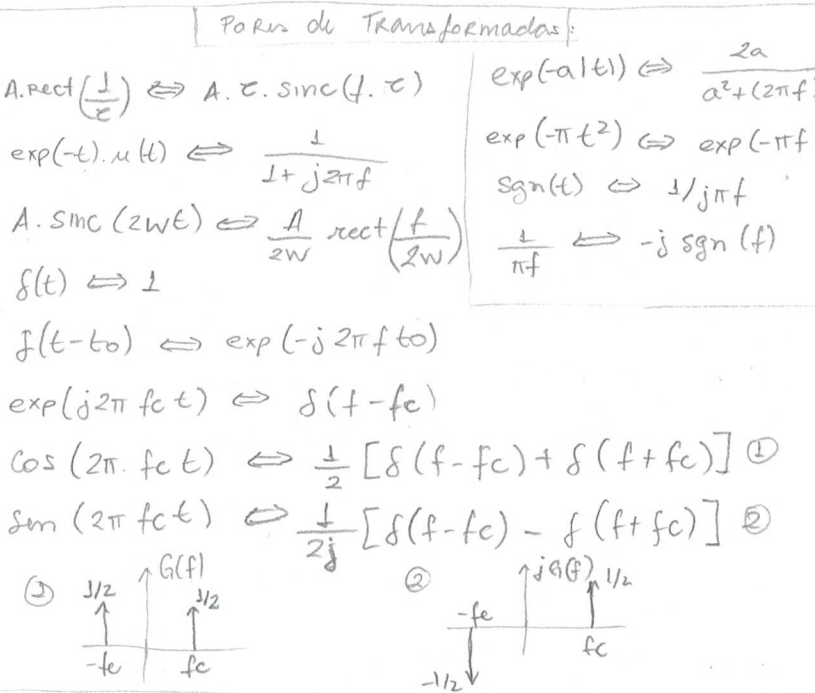 Pares de Transformadas:
A.rect(1/τ) ⇔ A.τ.sinc(f.τ)
exp(-t).u(t) ⇔ 1/(1+j2πf)
A.sinc(2wt) ⇔ A/2w rect(f/2w)
δ(t) ⇔ 1
δ(t-to) ⇔ exp(-j2πfto)
exp(j2πfct) ⇔ δ(f-fc)
cos(2π.fct) ⇔ 1/2 [δ(f-fc)+δ(f+fc)] ①
sen(2πfct) ⇔ 1/2j [δ(f-fc) - δ(f+fc)] ②
exp(-a|t|) ⇔ 2a/(a²+(2πf)
exp(-πt²) ⇔ exp(-πf
sgn(t) ⇔ 1/jπf
1/πf ⇔ -j sgn(f)
① G(f)
1/2 1/2
-fc fc
② jG(f)
1/2
-fc
fc
-1/2